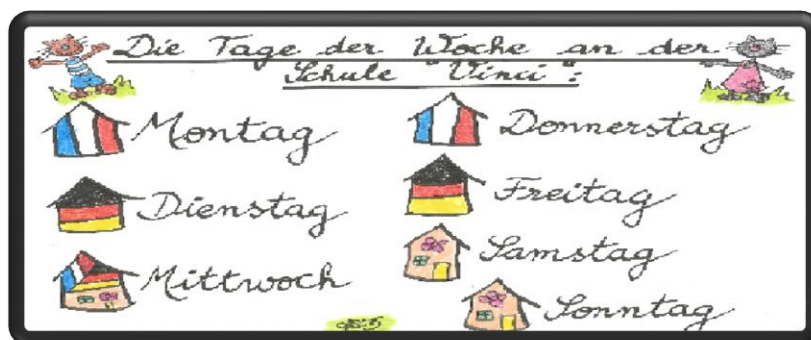 Die Tage der Woche an der
Schule "Vinci":
Montag
Dienstag
Mittwoch
Donnerstag
Freitag
Samstag
Sonntag